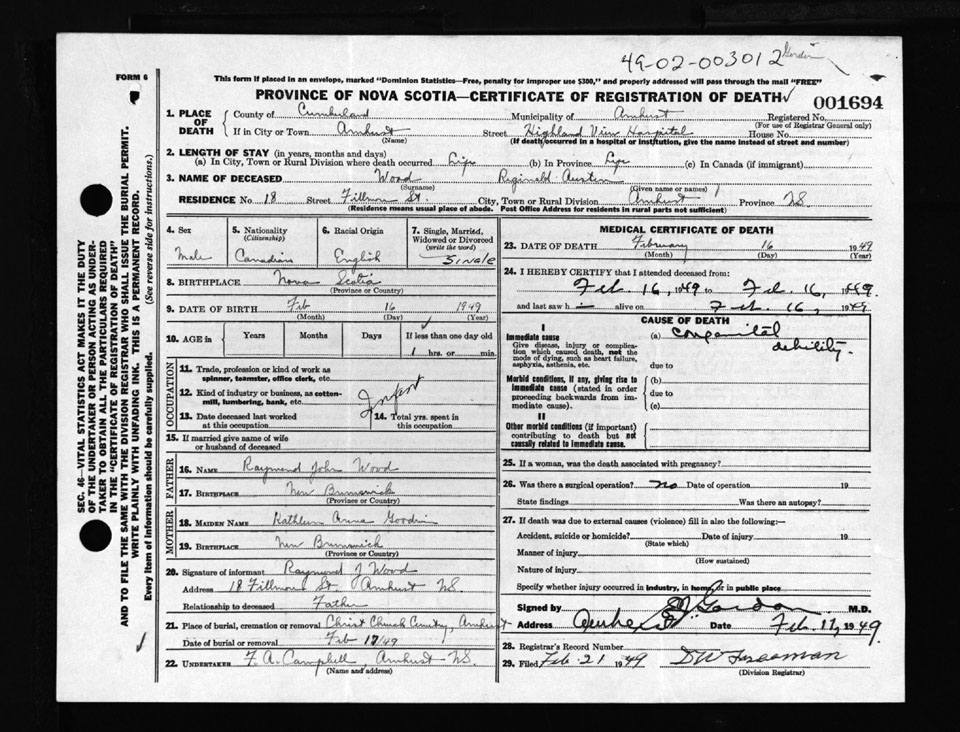 49-02-003012 Gordon
FORM 6
This form if placed in an envelope, marked "Dominion Statistics—Free, penalty for improper use $300," and properly addressed will pass through the mail "FREE"
PROVINCE OF NOVA SCOTIA—CERTIFICATE OF REGISTRATION OF DEATH
001694
1. PLACE OF DEATH
County of Cumberland Municipality of Amherst Registered No.
(For use of Registrar General only)
If in City or Town Amherst Street Highland View Hospital House No.
(Name) (If death occurred in a hospital or institution, give the name instead of street and number)
2. LENGTH OF STAY (in years, months and days)
(a) In City, Town or Rural Division where death occurred Life (b) In Province Life (c) In Canada (if immigrant)
3. NAME OF DECEASED Wood Reginald Austin
(Surname) (Given name or names)
RESIDENCE No. 18 Street Fillmore St. City, Town or Rural Division Amherst Province N.S.
(Residence means usual place of abode. Post Office Address for residents in rural parts not sufficient)
4. Sex Male
5. Nationality (Citizenship) Canadian
6. Racial Origin English
7. Single, Married, Widowed or Divorced (write the word) SINGLE
8. BIRTHPLACE Nova Scotia
(Province or Country)
9. DATE OF BIRTH Feb 16 1949
(Month) (Day) (Year)
10. AGE in Years Months Days If less than one day old
1 hrs. or min.
OCCUPATION
11. Trade, profession or kind of work as spinner, teamster, office clerk, etc.
12. Kind of industry or business, as cotton-mill, lumbering, bank, etc.
Infant
13. Date deceased last worked at this occupation
14. Total yrs. spent in this occupation
15. If married give name of wife or husband of deceased
FATHER
16. NAME Raymond John Wood
17. BIRTHPLACE New Brunswick
(Province or Country)
MOTHER
18. MAIDEN NAME Kathleen Anna Goodwin
19. BIRTHPLACE New Brunswick
(Province or Country)
20. Signature of informant Raymond J Wood
Address 18 Fillmore St Amherst N.S.
Relationship to deceased Father
21. Place of burial, cremation or removal Christ Church Cemetery, Amherst
Date of burial or removal Feb 17/49
22. UNDERTAKER F. A. Campbell Amherst N.S.
(Name and address)
MEDICAL CERTIFICATE OF DEATH
23. DATE OF DEATH February 16 1949
(Month) (Day) (Year)
24. I HEREBY CERTIFY that I attended deceased from:
Feb. 16, 1949 to Feb. 16, 1949.
and last saw h alive on Feb. 16, 1949.
CAUSE OF DEATH
I
Immediate cause
Give disease, injury or complication which caused death, not the mode of dying, such as heart failure, asphyxia, asthenia, etc.
(a) congenital debility.
due to
Morbid conditions, if any, giving rise to immediate cause (stated in order proceeding backwards from immediate cause).
(b)
due to
(c)
II
Other morbid conditions (if important) contributing to death but not causally related to immediate cause.
25. If a woman, was the death associated with pregnancy?
26. Was there a surgical operation? no Date of operation 19
State findings Was there an autopsy?
27. If death was due to external causes (violence) fill in also the following:—
Accident, suicide or homicide? Date of injury 19
(State which)
Manner of injury
(How sustained)
Nature of injury
Specify whether injury occurred in industry, in home, or in public place
Signed by Gordon M.D.
Address Amherst Date Feb. 17, 1949
28. Registrar's Record Number
29. Filed Feb. 21 1949 D W Freeman
(Division Registrar)
SEC. 46—VITAL STATISTICS ACT MAKES IT THE DUTY
OF THE UNDERTAKER OR PERSON ACTING AS UNDERTAKER
TO OBTAIN ALL THE PARTICULARS REQUIRED
IN THE "CERTIFICATE OF REGISTRATION OF DEATH"
AND TO FILE THE SAME WITH THE DIVISION REGISTRAR WHO SHALL ISSUE THE BURIAL PERMIT.
WRITE PLAINLY WITH UNFADING INK. THIS IS A PERMANENT RECORD.
Every item of information should be carefully supplied. (See reverse side for instructions.)